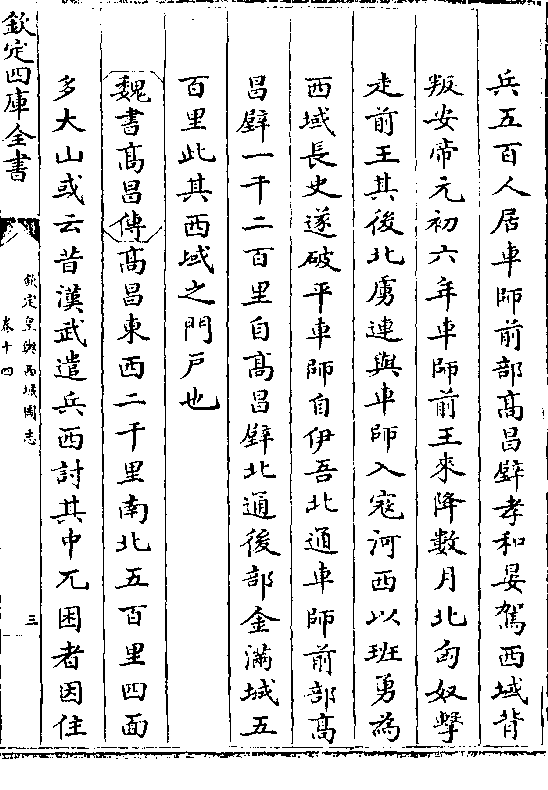 兵五百人居車師前部髙昌壁孝和晏駕西域背
叛安帝元初六年車師前王來降數月北匈奴擊
走前王其後北虜連與車師入寇河西以班勇為
西域長史遂破平車師自伊吾北通車師前部髙
昌壁一千二百里自髙昌壁北通後部金滿城五
百里此其西域之門戸也
魏書髙昌傳髙昌東西二千里南北五百里四面
多大山或云昔漢武遣兵西討其中兀困者因住
欽定四庫全書
欽定皇輿西域圖志
卷十四
三